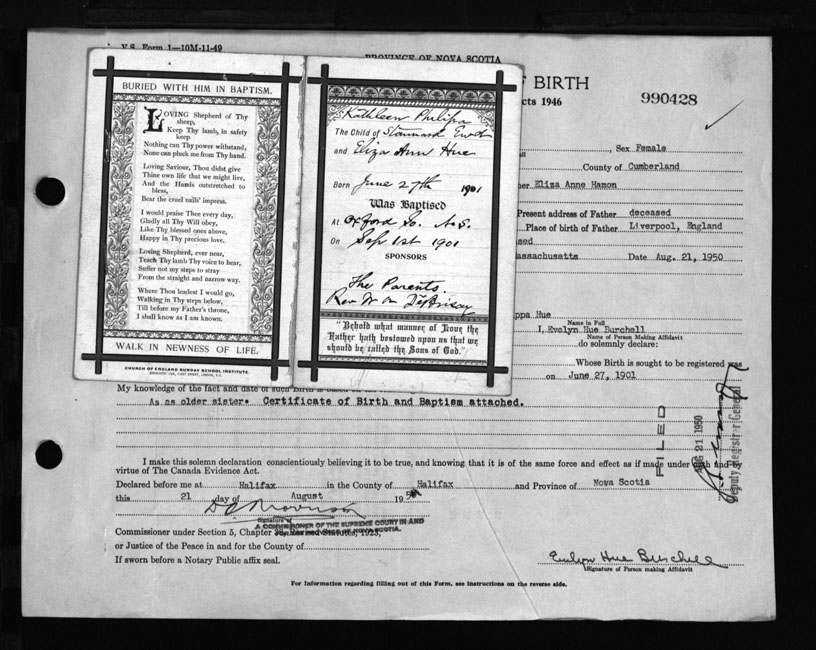 V.S. Form 1—10M-11-49
PROVINCE OF NOVA SCOTIA
OF BIRTH
Acts 1946
990428
Sex Female
County of Cumberland
Eliza Anne Hamon
Present address of Father deceased
Place of birth of Father Liverpool, England
Massachusetts Date Aug. 21, 1950
BURIED WITH HIM IN BAPTISM.
LOVING Shepherd of Thy
sheep,
Keep Thy lamb, in safety
keep
Nothing can Thy power withstand,
None can pluck me from Thy hand.
Loving Saviour, Thou didst give
Thine own life that we might live,
And the Hands outstretched to
bless,
Bear the cruel nails' impress.
I would praise Thee every day,
Gladly all Thy Will obey,
Like Thy blessed ones above,
Happy in Thy precious love.
Loving Shepherd, ever near,
Teach Thy lamb Thy voice to hear,
Suffer not my steps to stray
From the straight and narrow way.
Where Thou leadest I would go,
Walking in Thy steps below,
Till before my Father's throne,
I shall know as I am known.
WALK IN NEWNESS OF LIFE.
CHURCH OF ENGLAND SUNDAY SCHOOL INSTITUTE.
Kathleen Philipa
The Child of
and Eliza Ann Hue
Born June 27th 1901
Was Baptised
At Oxford
On Sep 1st 1901
SPONSORS
The Parents.
Rev W
"Behold what manner of Love the
Father hath bestowed upon us that we
should be called the Sons of God."
ppa Hue
Name in Full
I, Evelyn Hue Burchell
Name of Person Making Affidavit
do solemnly declare:
Whose Birth is sought to be registered was
on June 27, 1901
My knowledge of the fact and date of such Birth is based
As an older sister. Certificate of Birth and Baptism attached.
FILED
AUG 21 1950
Deputy Registrar General
I make this solemn declaration conscientiously believing it to be true, and knowing that it is of the same force and effect as if made under oath and by
virtue of The Canada Evidence Act.
Declared before me at Halifax in the County of Halifax and Province of Nova Scotia
this 21 day of August 1950
Signature of
A COMMISSIONER OF THE SUPREME COURT IN AND
Commissioner under Section 5, Chapter 38, Revised Statutes, 1923,
or Justice of the Peace in and for the County of
If sworn before a Notary Public affix seal.
Evelyn Hue Burchell
Signature of Person making Affidavit
For Information regarding filling out of this Form, see instructions on the reverse side.